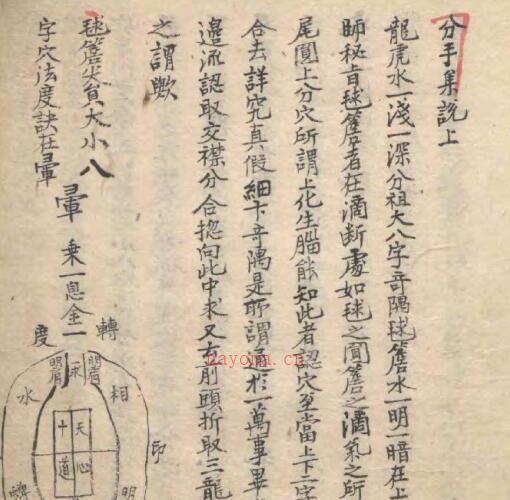 分手集說上
龍虎水一淺一深分祖大八字奇隅毬簷水一明一暗在
師秘旨毬簷者在滴斷處如毬之圓簷之滴氣之所
尾圓上分穴所謂上化生腦能知此者認穴至當上下一字
合去詳究真假細卞奇隅是所謂通於一萬事畢
邊流認取交襟分合揔向此中求又古則頭折取三龍
之謂歟
毬簷尖負大小八
字穴法度訣在暈
暈
乘一息金一
轉
度
相
水
印
明
天心
十道
毬
dayoma.cn